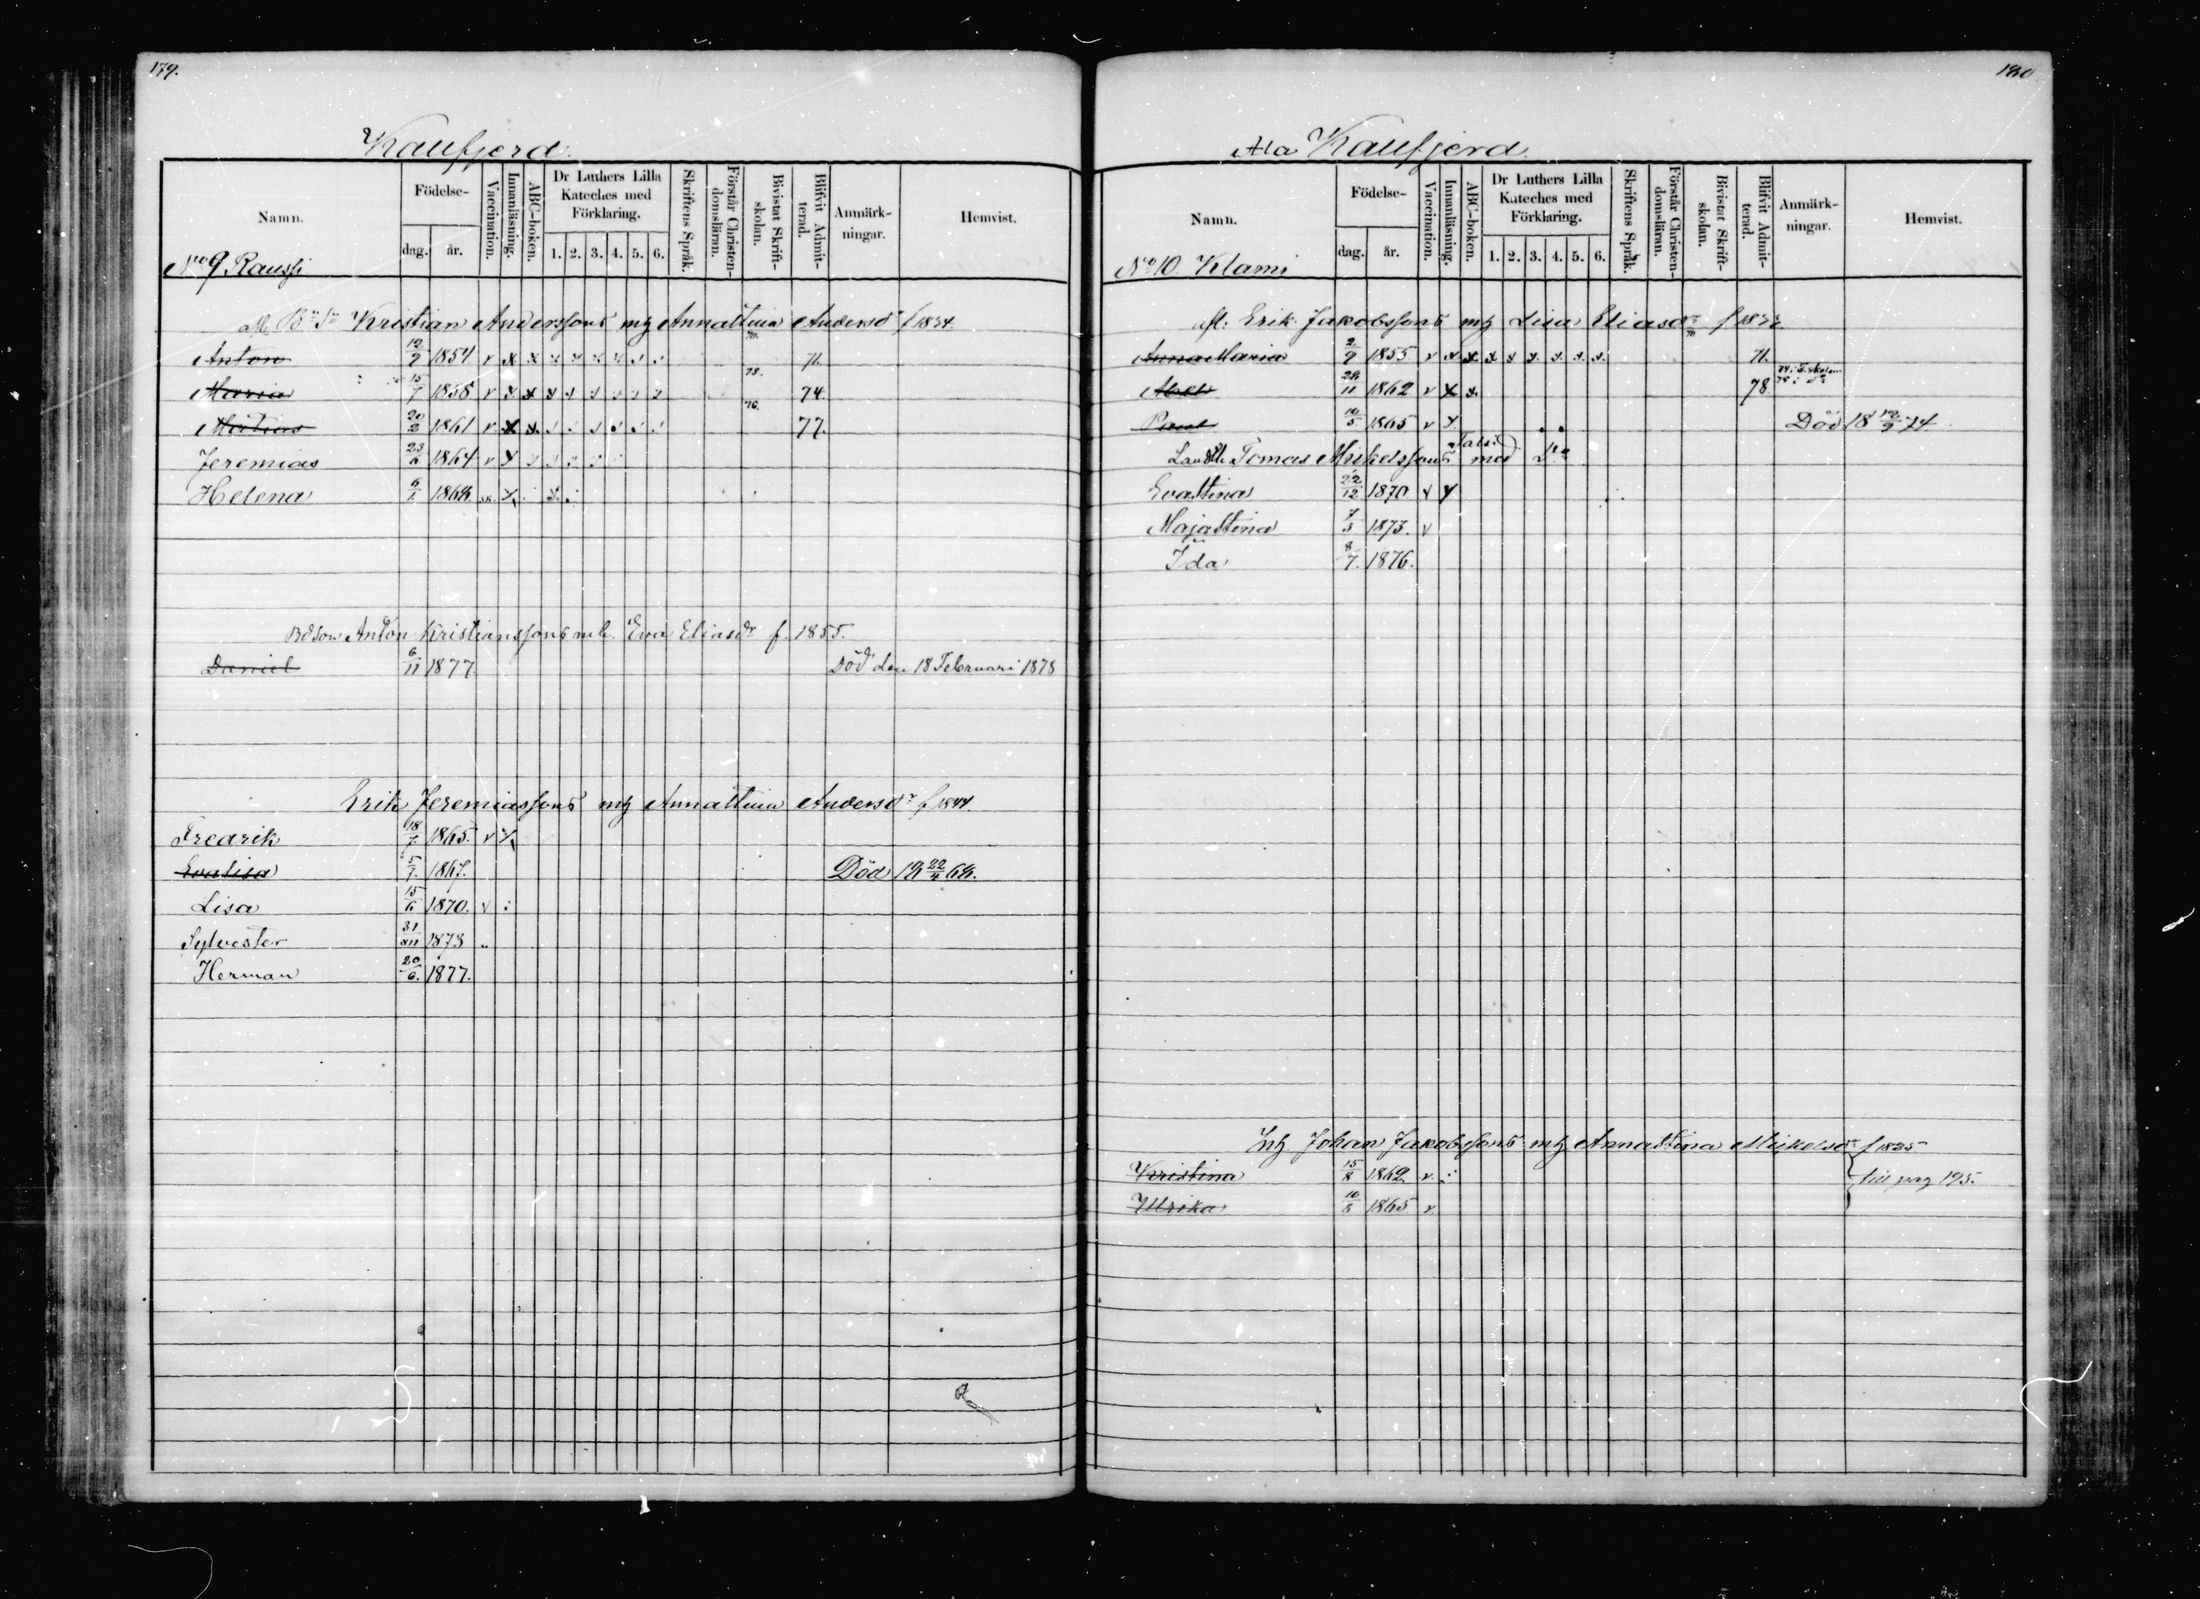 179.
Kaufjerd.
Namn.
Födelse-
dag. år.
Vaccination.
Innanläsning.
ABC-boken.
Dr Luthers Lilla Kateches med Förklaring.
1. 2. 3. 4. 5. 6.
Skriftens Språk.
Förstår Christendomsläran.
Bivistat Skriftskolan.
Blifvit Admitterad.
Anmärkningar.
Hemvist.
No 9 Raussi
afl. Kristian Anderssons mg Annastina Andersdr f 1834
Anton 12/9 1854 v x x x x x x 70. 71.
Maria 15/7 1858 v x x x 73. 74.
20/2 1861 v x x 76. 77.
Jeremias 23/6 1864 v x
Helena 6/1 1868 x
Bdson Anton Kristianssons m h. Eva Eliasdr f. 1855.
Daniel 6/11 1877 Död den 18 Februari 1878
Erik Jeremiassons mg Annastina Andersdr f 1844.
Fredrik 18/7 1865. v x
Evalisa 5/7. 1867. Död 18 22/4 68.
Lisa 15/6 1870. v
Sylvester 31/XII 1873
Herman 20/6. 1877.
180
Ala Kaufjerd.
Namn.
Födelse-
dag. år.
Vaccination.
Innanläsning.
ABC-boken.
Dr Luthers Lilla Kateches med Förklaring.
1. 2. 3. 4. 5. 6.
Skriftens Språk.
Förstår Christendomsläran.
Bivistat Skriftskolan.
Blifvit Admitterad.
Anmärkningar.
Hemvist.
No 10 Klami
afl. Erik Jakobssons mg Lisa Eliasdr
AnnaMaria 2/9 1855 v x x x 70 71.
Abel 28/11 1862 v x x 78
10/5 1865 v x Död 18 /9 74
Tomas Mickelssons med Do
Evastina 22/12 1870 v x
Majastina 7/3 1873. v
Ida 8/7. 1876.
Inh Johan Jakobssons mg Annastina Mickelsdr f 1825
Kristina 15/8 1862 v
Ulrika 10/8 1865 v
till pag 195.